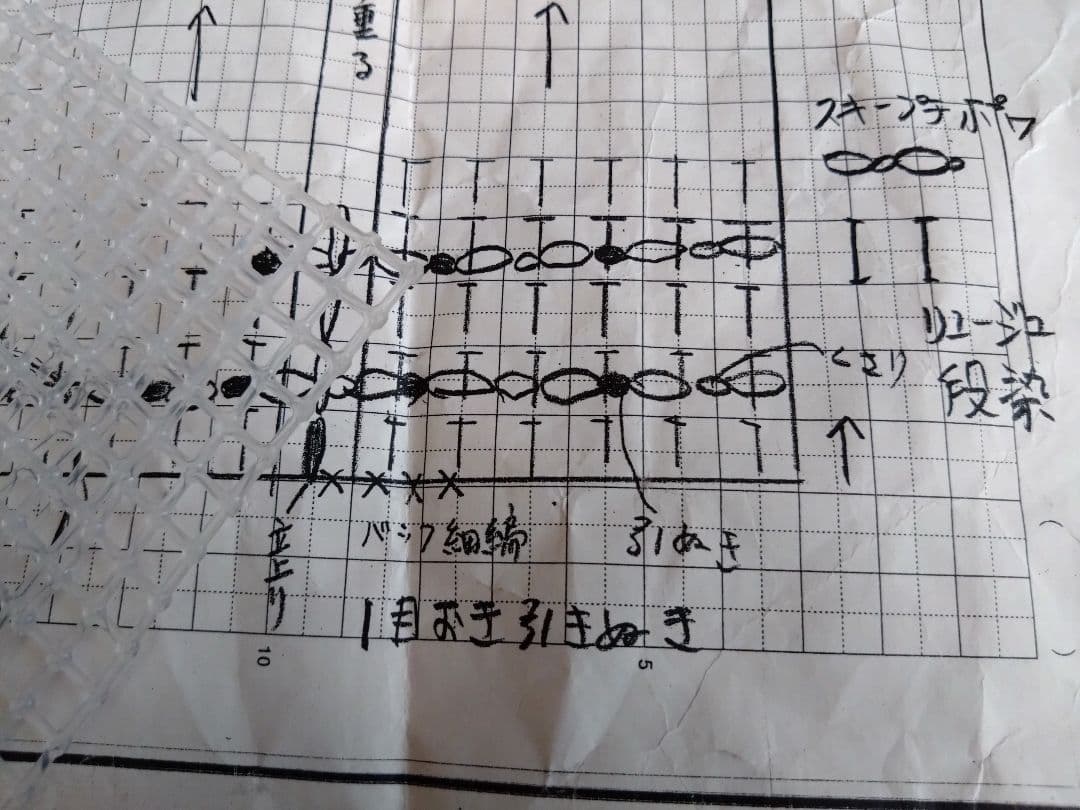 重る
スキープデポワ
リュージュ
段染
くさり
立上り
バック細編
引ぬき
1目おき引きぬき
10
5